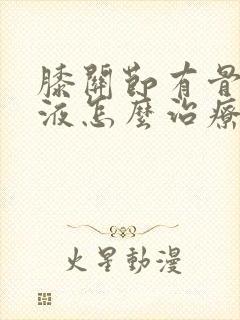 膝關節有骨
液怎麼治療
火星動漫